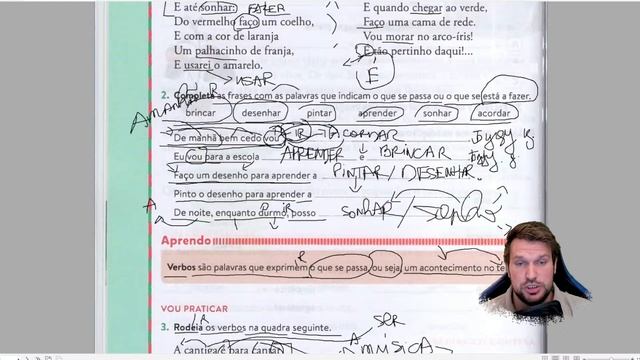 E até sonhar: FAZER
Do vermelho faço um coelho,
E com a cor de laranja
Um palhacinho de franja,
E usarei o amarelo.
USAR
E quando chegar ao verde,
Faço uma cama de rede.
Vou morar no arco-íris!
Erão pertinho daqui!...
E
2. Completa as frases com as palavras que indicam o que se passa ou o que se está a fazer.
brincar desenhar pintar aprender sonhar acordar
De manhã bem cedo vou IR ACORDAR
Eu vou para a escola APRENDER e BRINCAR
Faço um desenho para aprender a PINTAR / DESENHAR
Pinto o desenho para aprender a
De noite, enquanto durmo, posso SONHAR /
Aprendo
Verbos são palavras que exprimem o que se passa, ou seja, um acontecimento no te
VOU PRATICAR
3. Rodeia os verbos na quadra seguinte. SER
A cantiga é para cantar MÚSICA